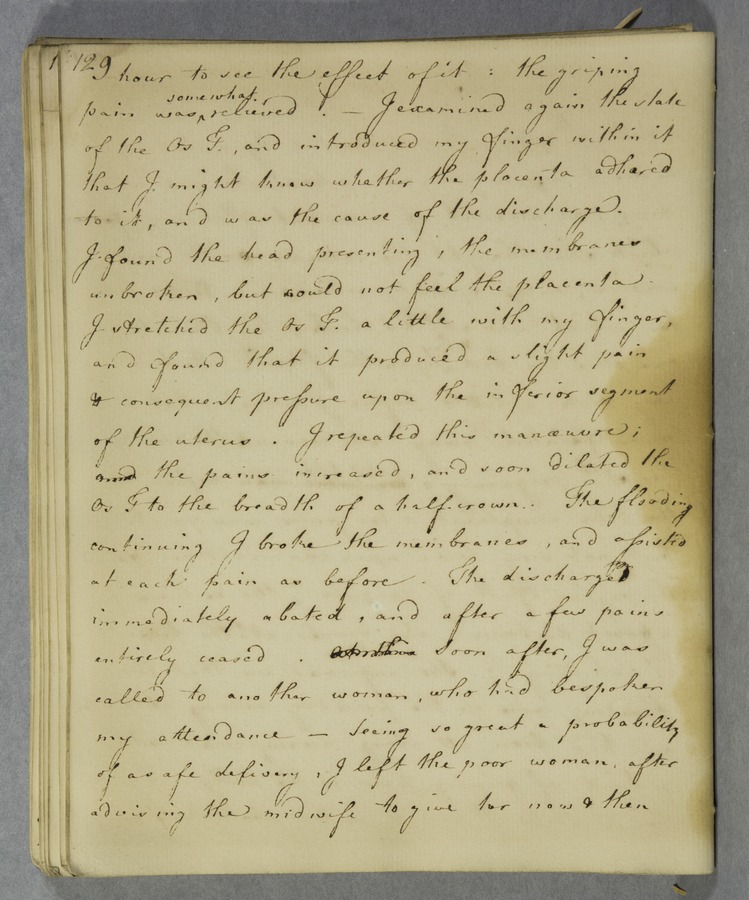 129
hour to see the effect of it : the griping
pain was somewhat relieved . — I examined again the state
of the Os T., and introduced my finger within it
that I might know whether the placenta adhered
to it, and was the cause of the discharge.
I found the head presenting, the membranes
unbroken, but could not feel the placenta.
I stretched the Os T. a little with my finger,
and found that it produced a slight pain
& consequent pressure upon the inferior segment
of the uterus . I repeated this manœuvre;
and the pains increased, and soon dilated the
Os T to the breadth of a half-crown. The flooding
continuing I broke the membranes, and assisted
at each pain as before . The discharge
immediately abated, and after a few pains
entirely ceased . soon after, I was
called to another woman, who had bespoken
my attendance — Seeing so great a probability
of a safe delivery, I left the poor woman, after
advising the midwife to give her now & then